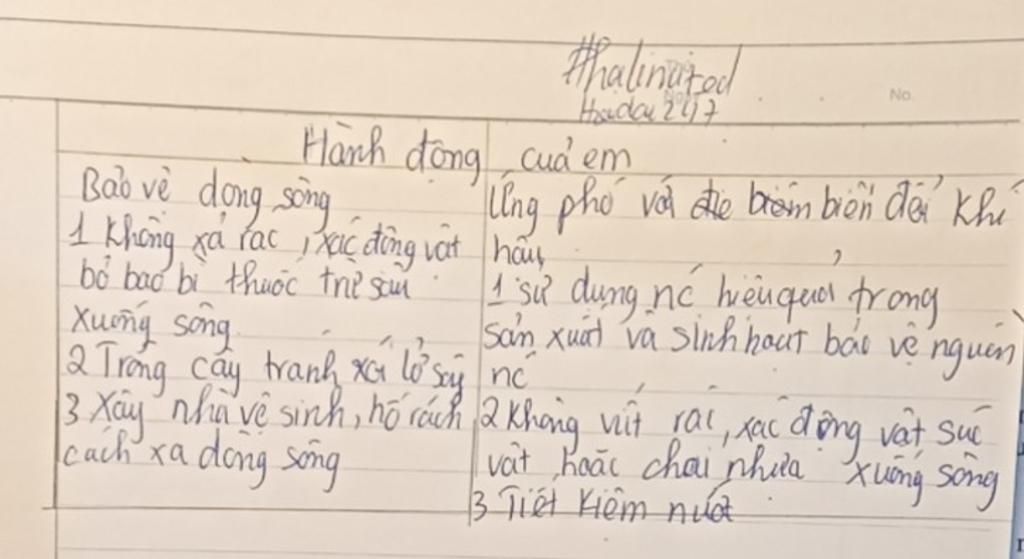 #halinited
Hoidai247
No.
Hành động của em
Bảo vệ dòng sông
1 Không xả rác, xác động vật
bỏ bao bì thuốc trừ sâu
xuống sông.
2 Trồng cây tranh xói lở
3 Xây nhà vệ sinh, hố rách
cách xa dòng sông
Ứng phó với biến đổi khí
hậu
1 sử dụng nc hiệu quả trong
sản xuất và sinh hoạt bảo vệ nguồn
nc
2 không vứt rác, xác động vật súc
vật hoặc chai nhựa xuống sông
3 Tiết kiệm nước